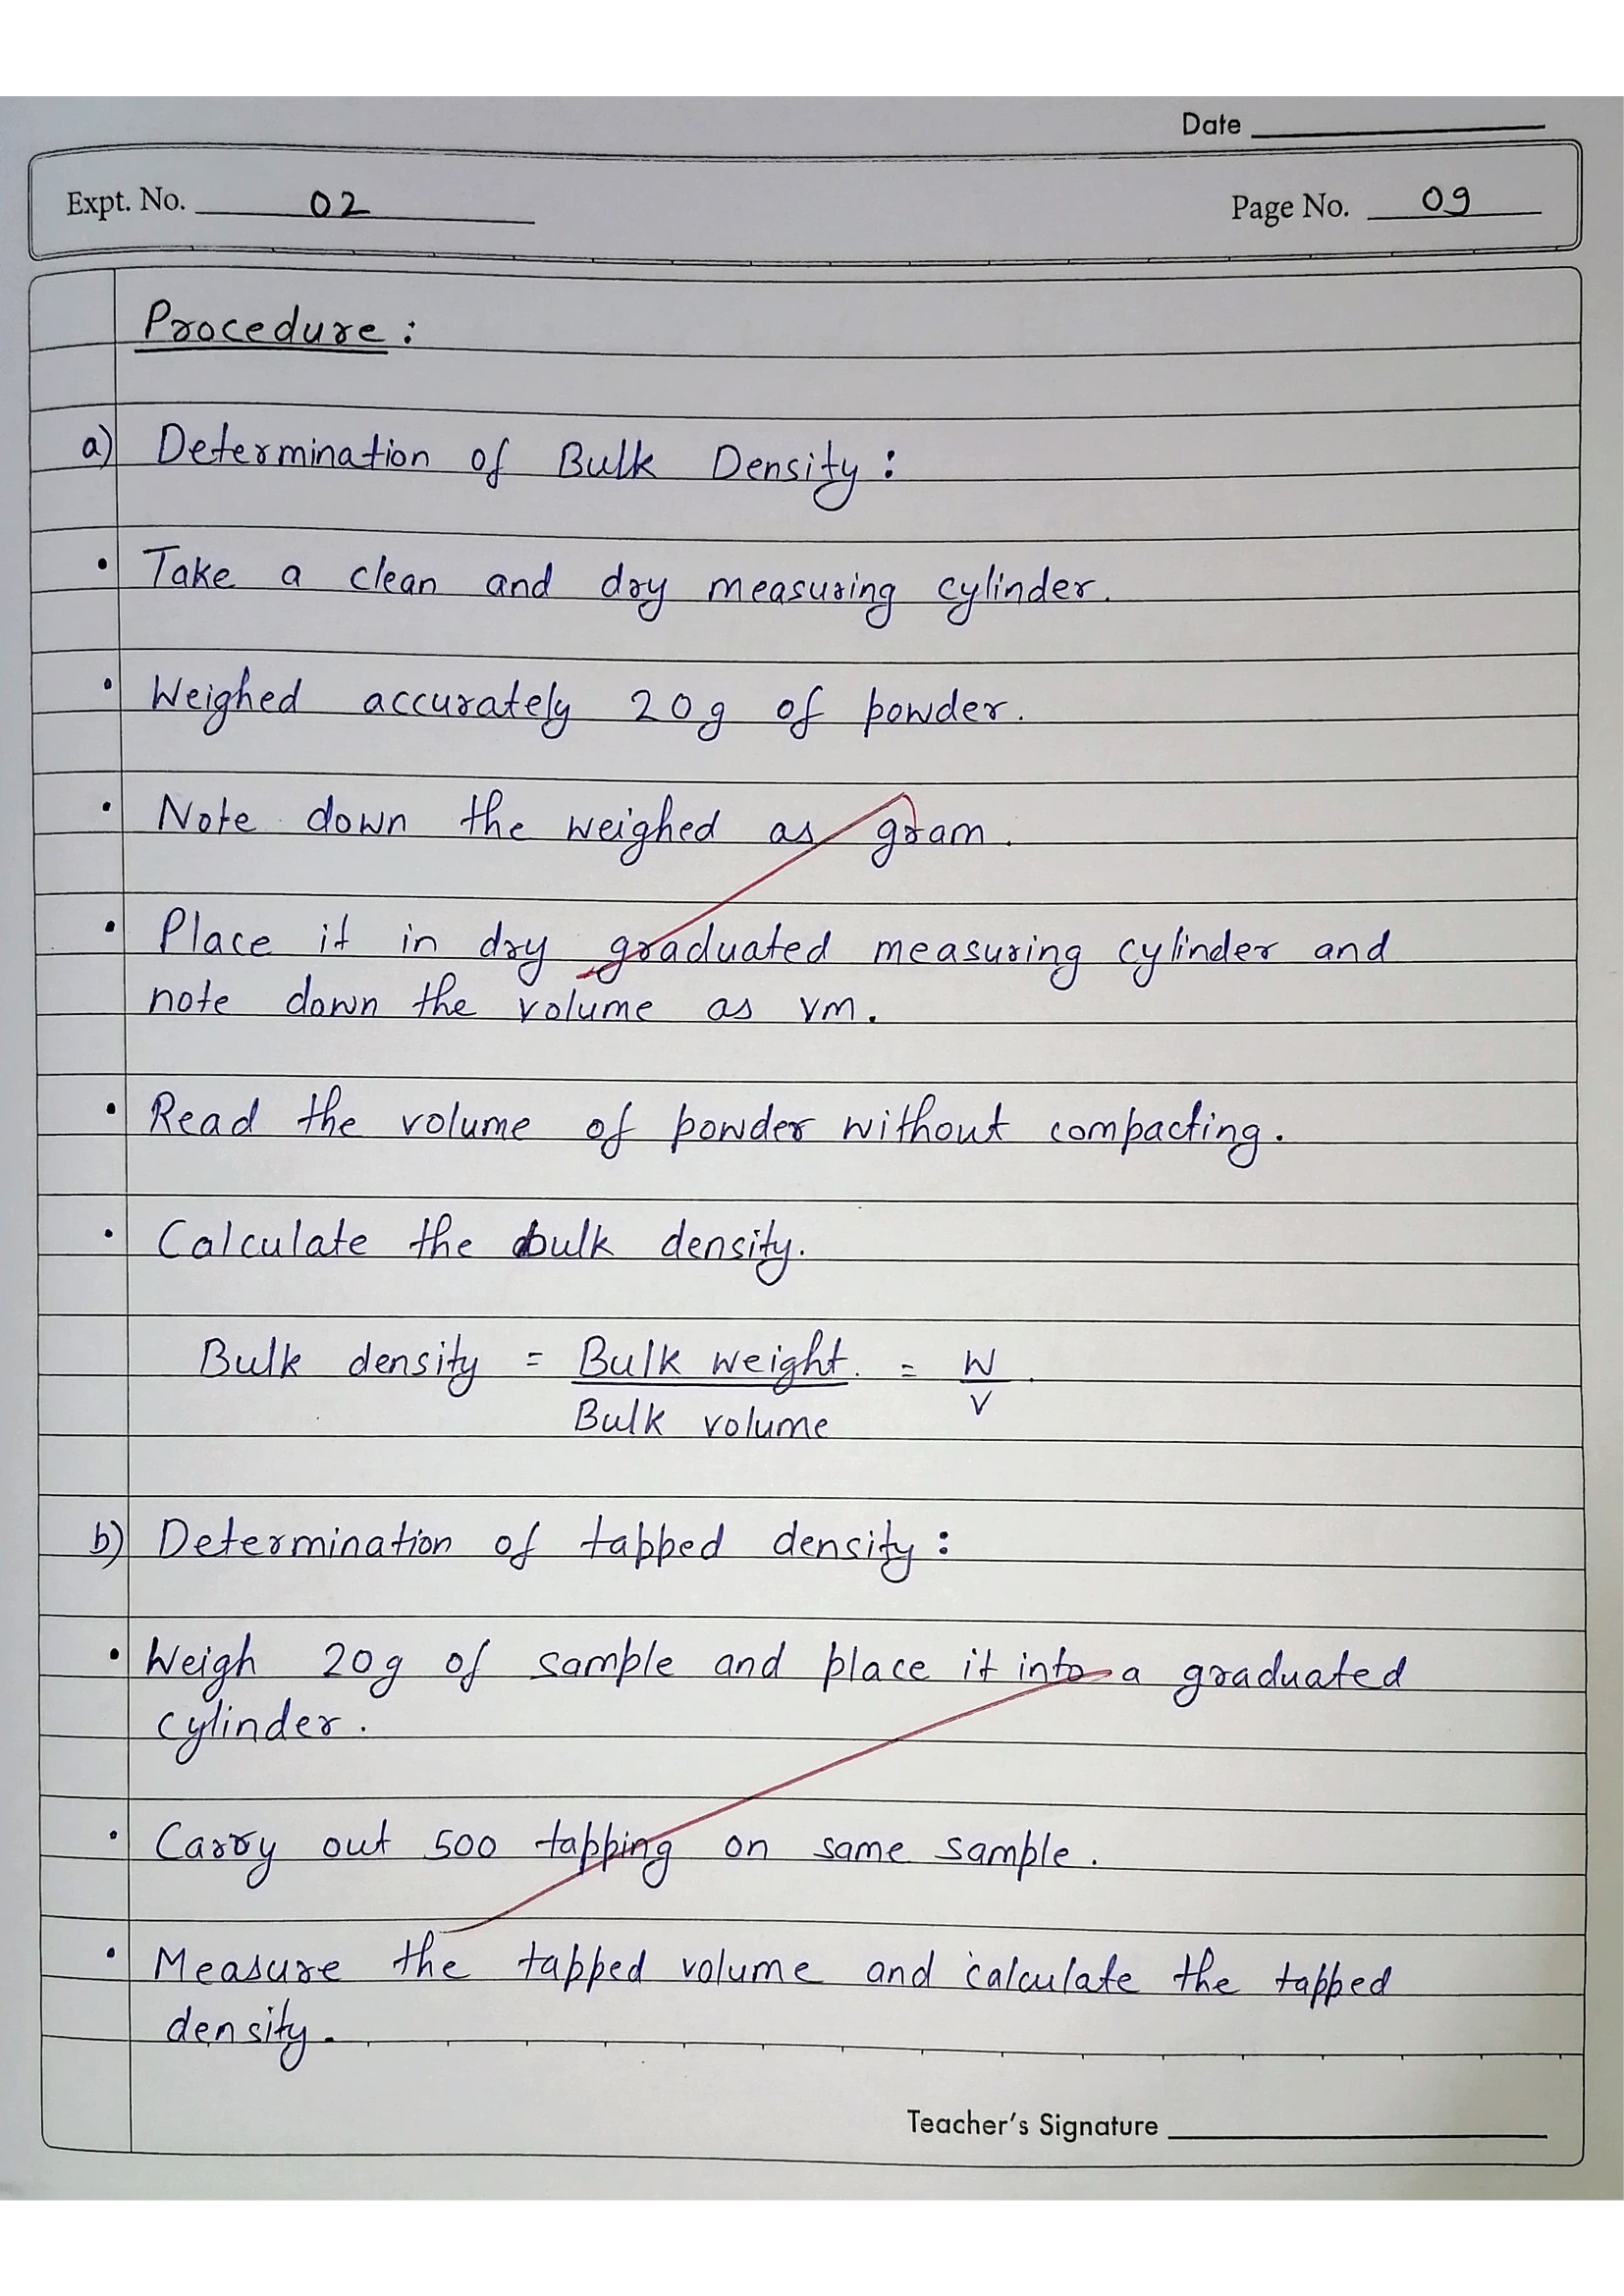 Date
Expt. No. 02
Page No. 09
Procedure :
a) Determination of Bulk Density :
• Take a clean and dry measuring cylinder.
• Weighed accurately 20g of powder.
• Note down the weighed as gram.
• Place it in dry graduated measuring cylinder and
note down the volume as vm.
• Read the volume of powder without compacting.
• Calculate the bulk density.
Bulk density = Bulk weight = W
Bulk volume V
b) Determination of tapped density :
• Weigh 20g of sample and place it into a graduated
cylinder.
• Carry out 500 tapping on same sample.
• Measure the tapped volume and calculate the tapped
density.
Teacher's Signature